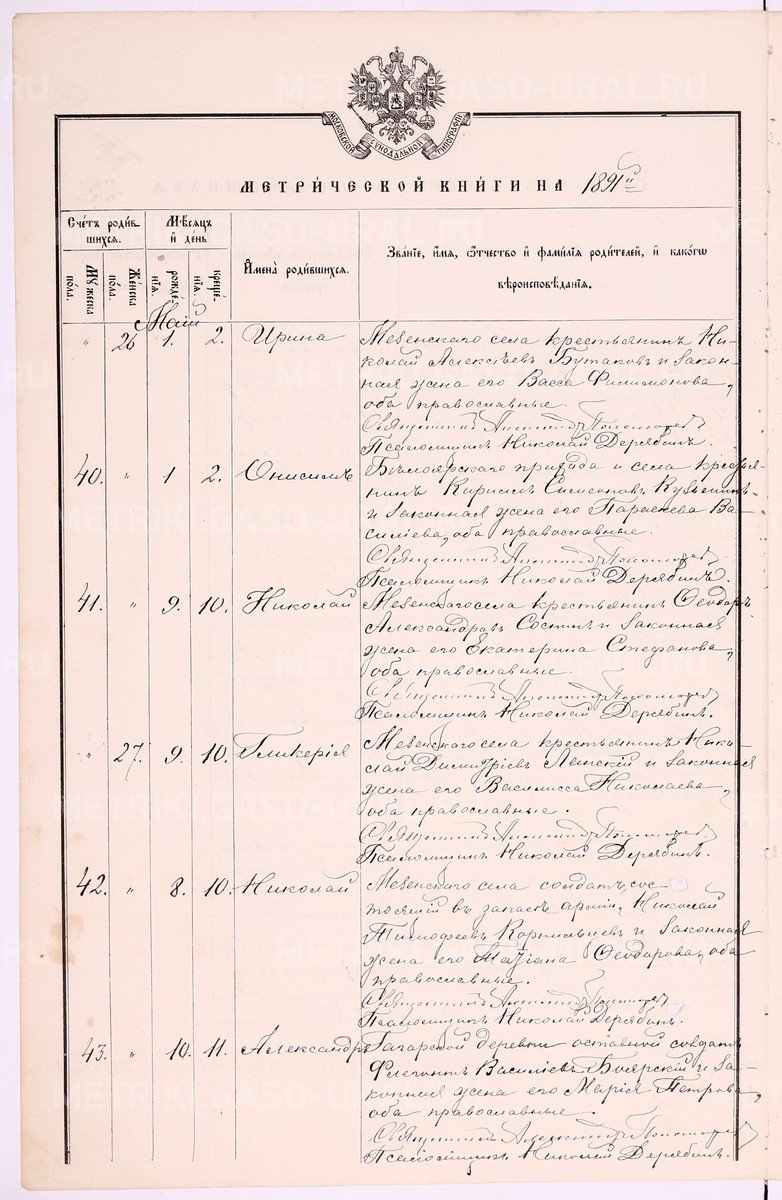 МОСКОВСКОЙ СѴНОДАЛЬНОЙ ТИПОГРАФІИ
МЕТРИ́ЧЕСКОЙ КНИ́ГИ НА 1891й
Сче́тъ роди́в-
шихся.
Мѣ́сяцъ
и҆ де́нь
И҆мена̀ роди́вшихся.
Зва́нїе, и҆́мя, ѻ҆́тчество и҆ фами́лїя роди́телей, и҆ како́гѡ
вѣроисповѣ́данїя.
Му́жеска по́ла.
Же́нска по́ла.
рожде́нїя.
креще́нїя.
Май
" 26 1. 2. Ирина Мезенскаго села крестьянинъ Ни-
колай Алексѣевъ Бутаковъ и закон-
ная жена его Васса Филимонова,
оба православные.
Священникъ Пономаревъ
Псаломщикъ Николай Дерябинъ.
40. " 1 2. Онисимъ Бѣлоярскаго прихода и села кресть-
нинъ Кириллъ Симеоновъ
и законная жена его Параскева Ва-
силіева, оба православные.
Священникъ Пономаревъ
Псаломщикъ Николай Дерябинъ.
41. " 9. 10. Николай Мезенскаго села крестьянинъ Ѳеодоръ
Александровъ и законная
жена его Екатерина Стефанова,
оба православные.
Священникъ Пономаревъ
Псаломщикъ Николай Дерябинъ.
" 27. 9. 10. Гликерія Мезенскаго села крестьянинъ Нико-
лай Димитріевъ Ленскій и законная
жена его Василисса Николаева,
оба православные.
Священникъ Пономаревъ
Псаломщикъ Николай Дерябинъ.
42. " 8. 10. Николай Мезенскаго села солдатъ, сос-
тоящій въ запасѣ арміи, Николай
Тимофеевъ Корнильцевъ и законная
жена его Татіана Ѳеодорова, оба
православные.
Священникъ Пономаревъ
Псаломщикъ Николай Дерябинъ.
43. " 10. 11. Александръ Гагарской деревни отставной солдатъ
Флегонтъ Василіевъ Боярскій и за-
конная жена его Марія Петрова,
оба православные.
Священникъ Александръ Пономаревъ
Псаломщикъ Николай Дерябинъ.